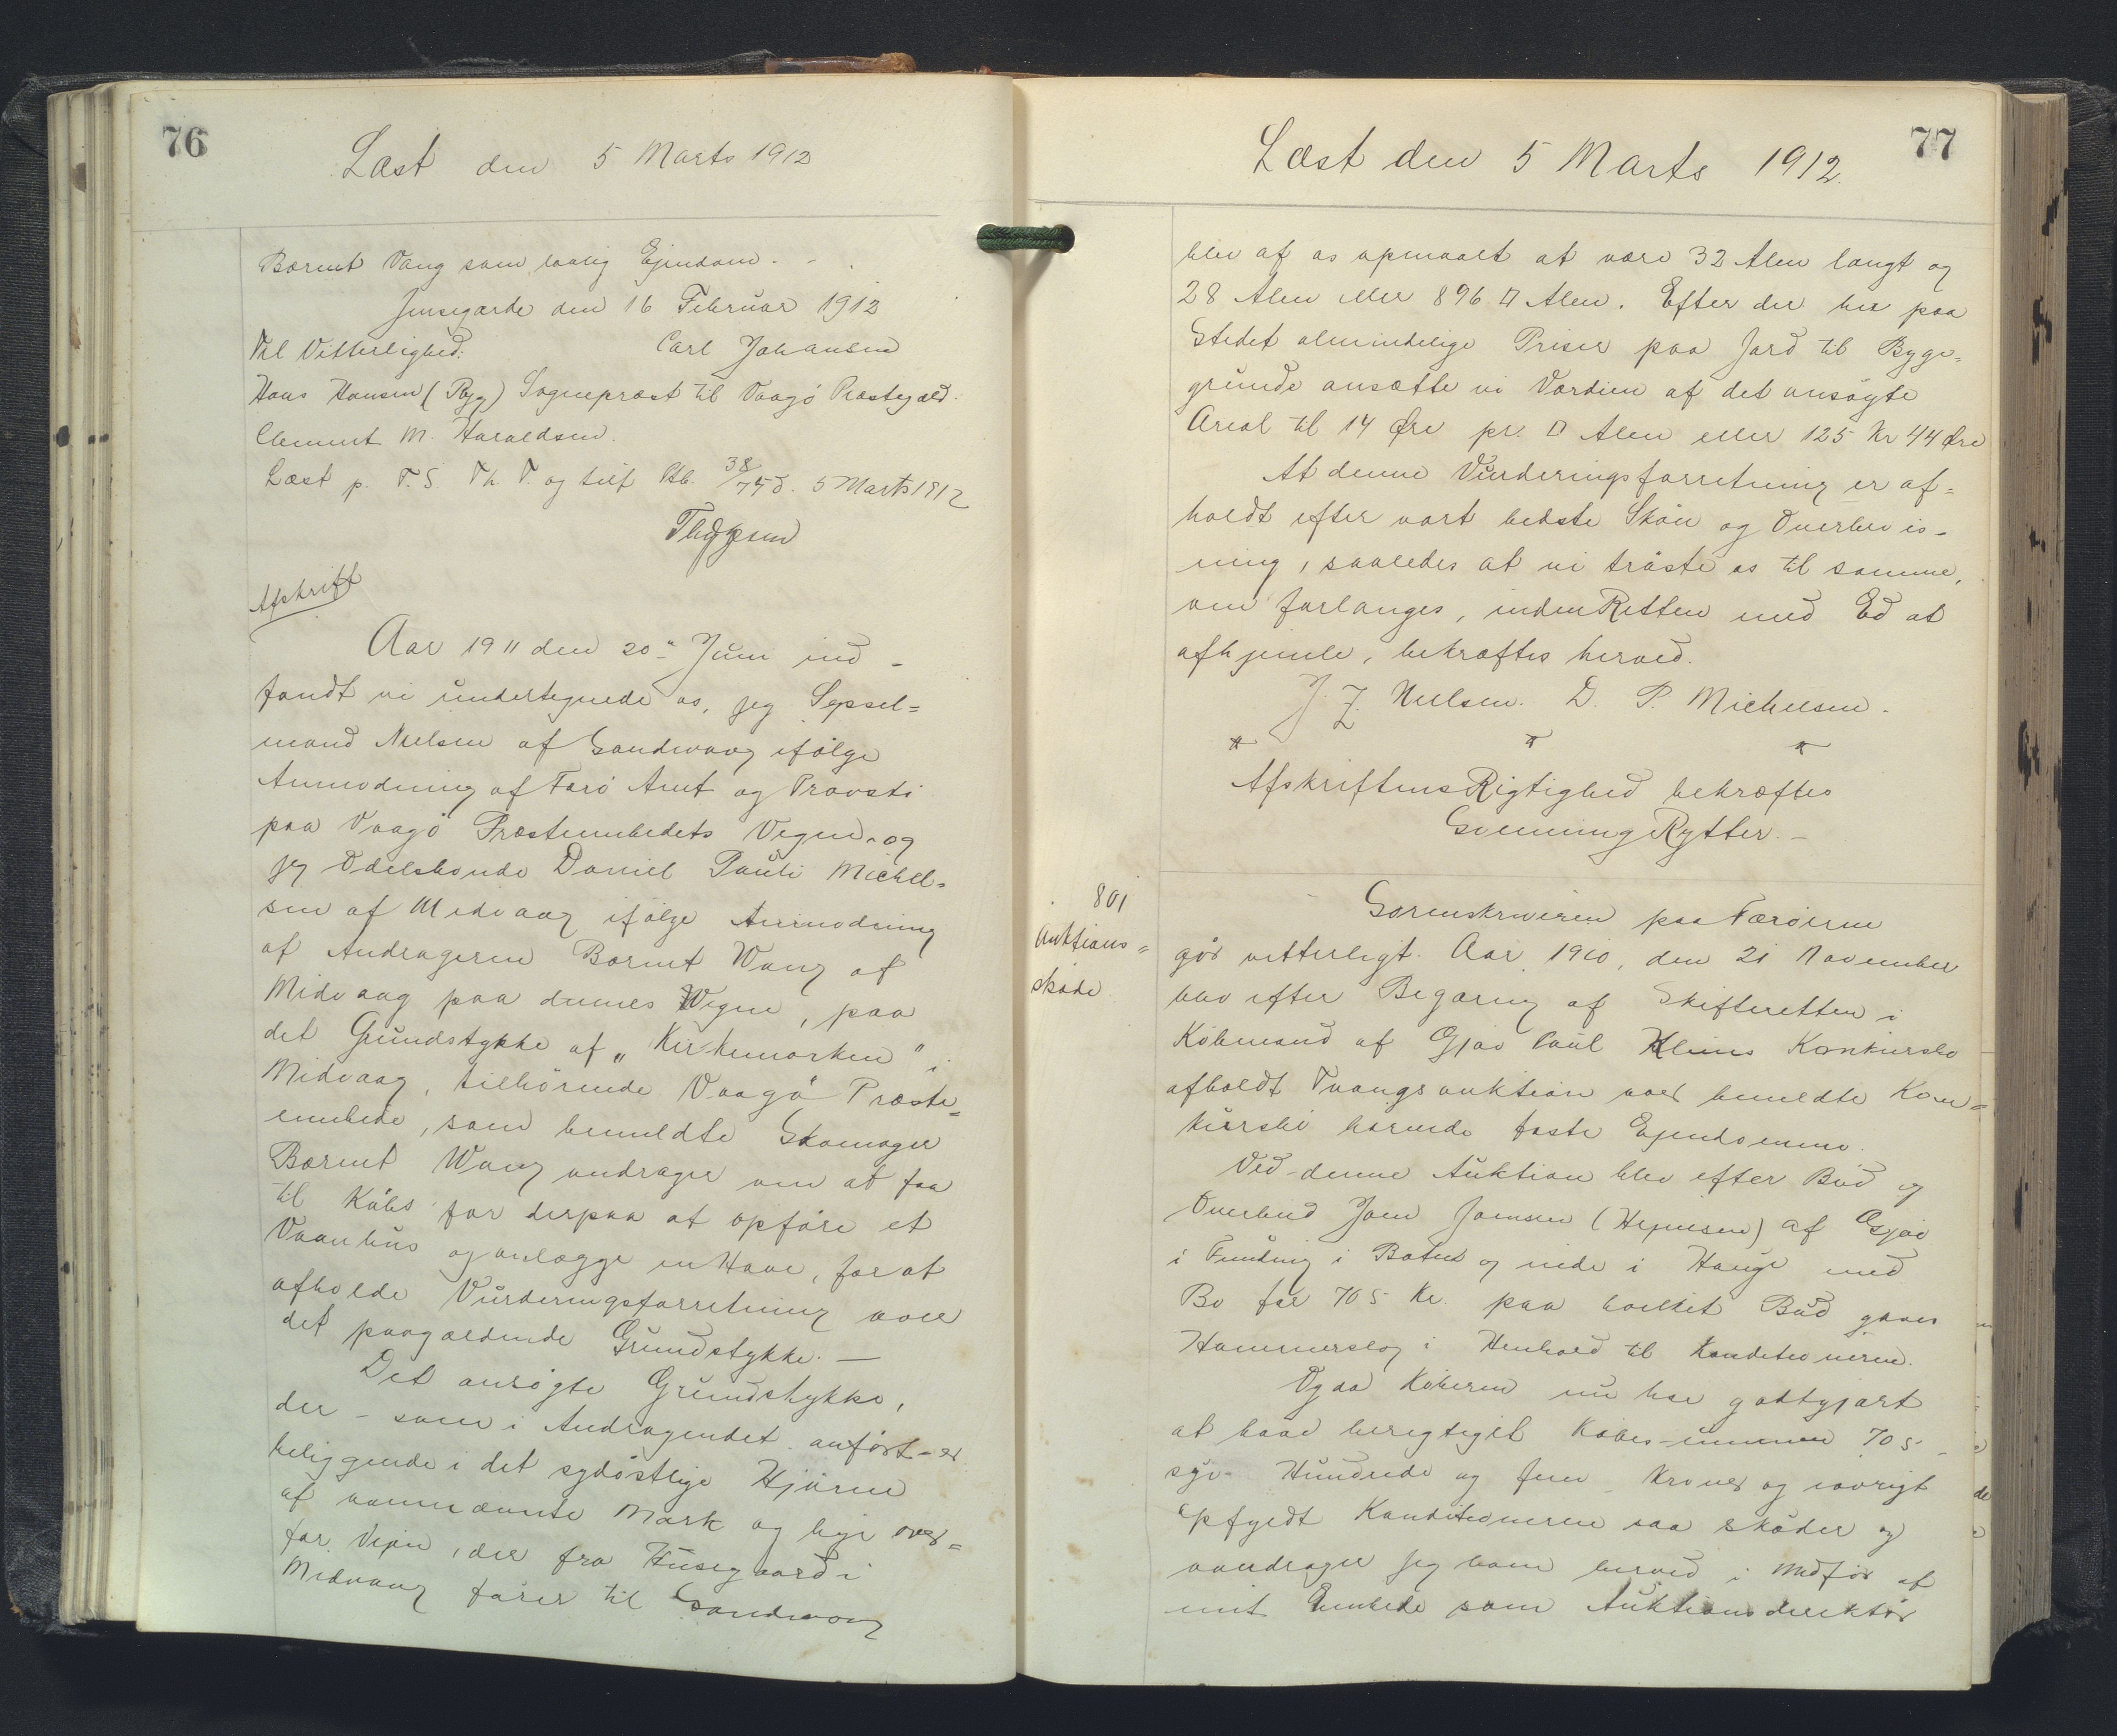 76
Læst den 5 Marts 1912
Bærent Vang som lovlig Ejendom.
Jensegarde den 16 Februar 1912
Til Vitterlighed: Carl Johansen
Hans Hansen (Ryg) Sognepræst til Vaagö Præstegæld.
Clement M. Haraldsen.
Læst p. F. S. Th. V. og tilf Ptb. 38/745. 5 Marts 1912
Afskrift
Aar 1911 den 20" Juni ind-
fandt vi undertegnede os, jeg Syssel=
mand Nielsen af Sandevaag ifölge
Anmodning af Færö Amt og Provsti
paa Vaagö Præsteembedets Vegne, og
jeg Odelsbonde Daniel Pauli Michel=
sen af Midvaag ifölge Anmodning
af Andrageren Bærent Wang af
Midvaag paa dennes Vegne, paa
det Grundstykke af "Kirkemarken" i
Midvaag, tilhörende Vaagö Præste=
embede, som bemeldte Skomager
Bærent Wang andrager om at faa
til Köbs for derpaa at opföre et
Vaanhus og anlægge en Have, for at
afholde Vurderingsforretning over
det paagældende Grundstykke. —
Det ansögte Grundstykke,
der - som i Andragendet anfört - er
beliggende i det sydöstlige Hjörne
af navnnævnte Mark og lige over=
for Vejen, der fra Husegaard i
Midvaag förer til Sandevaag
77
Læst den 5 Marts 1912.
blev af os opmaalt at være 32 Alen langt og
28 Alen eller 896 □ Alen. Efter der her paa
Stedet almindelige Priser paa Jord til Bygge=
grunde ansætte vi Værdien af det ansögte
Areal til 14 Øre pr. □ Alen eller 125 Kr 44 Øre
At denne Vurderingsforretning er af=
holdt efter vort bedste Skön og Overbevis-
ning, saaledes at vi tröste os til samme,
om forlanges, inden Retten med Ed at
afhjemle, bekræftes herved.
J. Z. Nielsen. D. P. Michelsen.
Afskriftens Rigtighed bekræftes
Svenning Rytter. -
801
Auktions=
sköde
Sorenskriveren paa Færöerne
gör vitterligt. Aar 1910, den 21 November
blev efter Begæring af Skifteretten i
Köbmand af Gjov Poul Kleins Konkursbo
afholdt Tvangsauktion over bemeldte Kon=
kursbo hörende faste Ejendomme.
Ved denne Auktion blev efter Bud og
Overbud Joen Joensen (Hejnesen) af Gjov
i Funding i Botni og nide i Hauge med
Bo for 705 Kr. paa hvilket Bud gaves
Hammerslag i Henhold til Konditionerne.
Og da Köberen nu har godtgjort
at have berigtiget Köbesummen 705 -
syv Hundrede og fem Kroner og iövrigt
opfyldt Konditionerne saa sköder og
overdrager jeg ham herved i Medför af
mit Embede som Auktionsdirektör